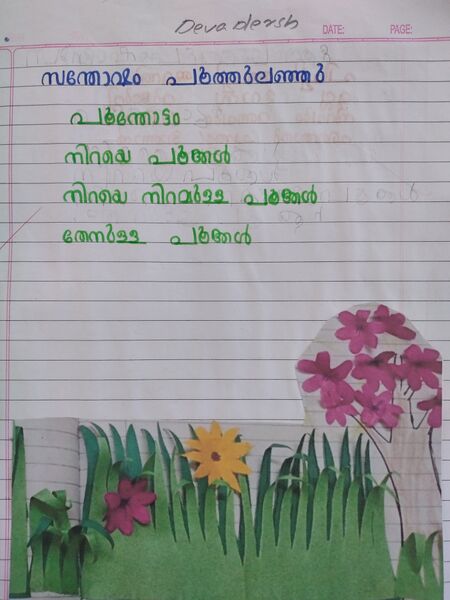 Deva dersh
DATE: PAGE:
സന്തോഷം പൂത്തുലഞ്ഞു
പൂന്തോട്ടം
നിറയെ പൂക്കൾ
നിറയെ നിറമുള്ള പൂക്കൾ
തേനുള്ള പൂക്കൾ